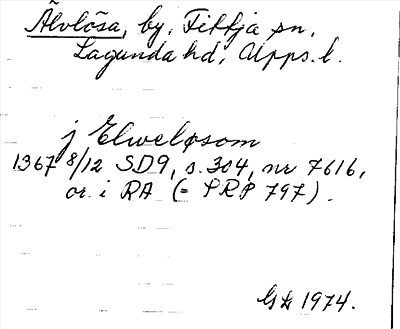 Älvlösa, by, Fittja sn,
Lagunda hd, Upps. l.
j Elweløsom
1367 8/12 SD9, s. 304, nr 7616,
or. i RA (= PRP 797).
1974.